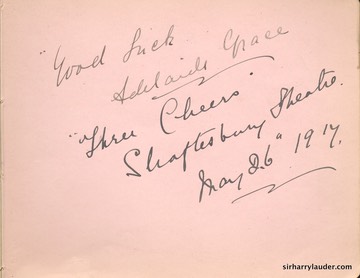 "Good Luck
Adelaide Grace
"Three Cheers"
Shaftesbury Theatre.
May 26" 1917.
sirharrylauder.com